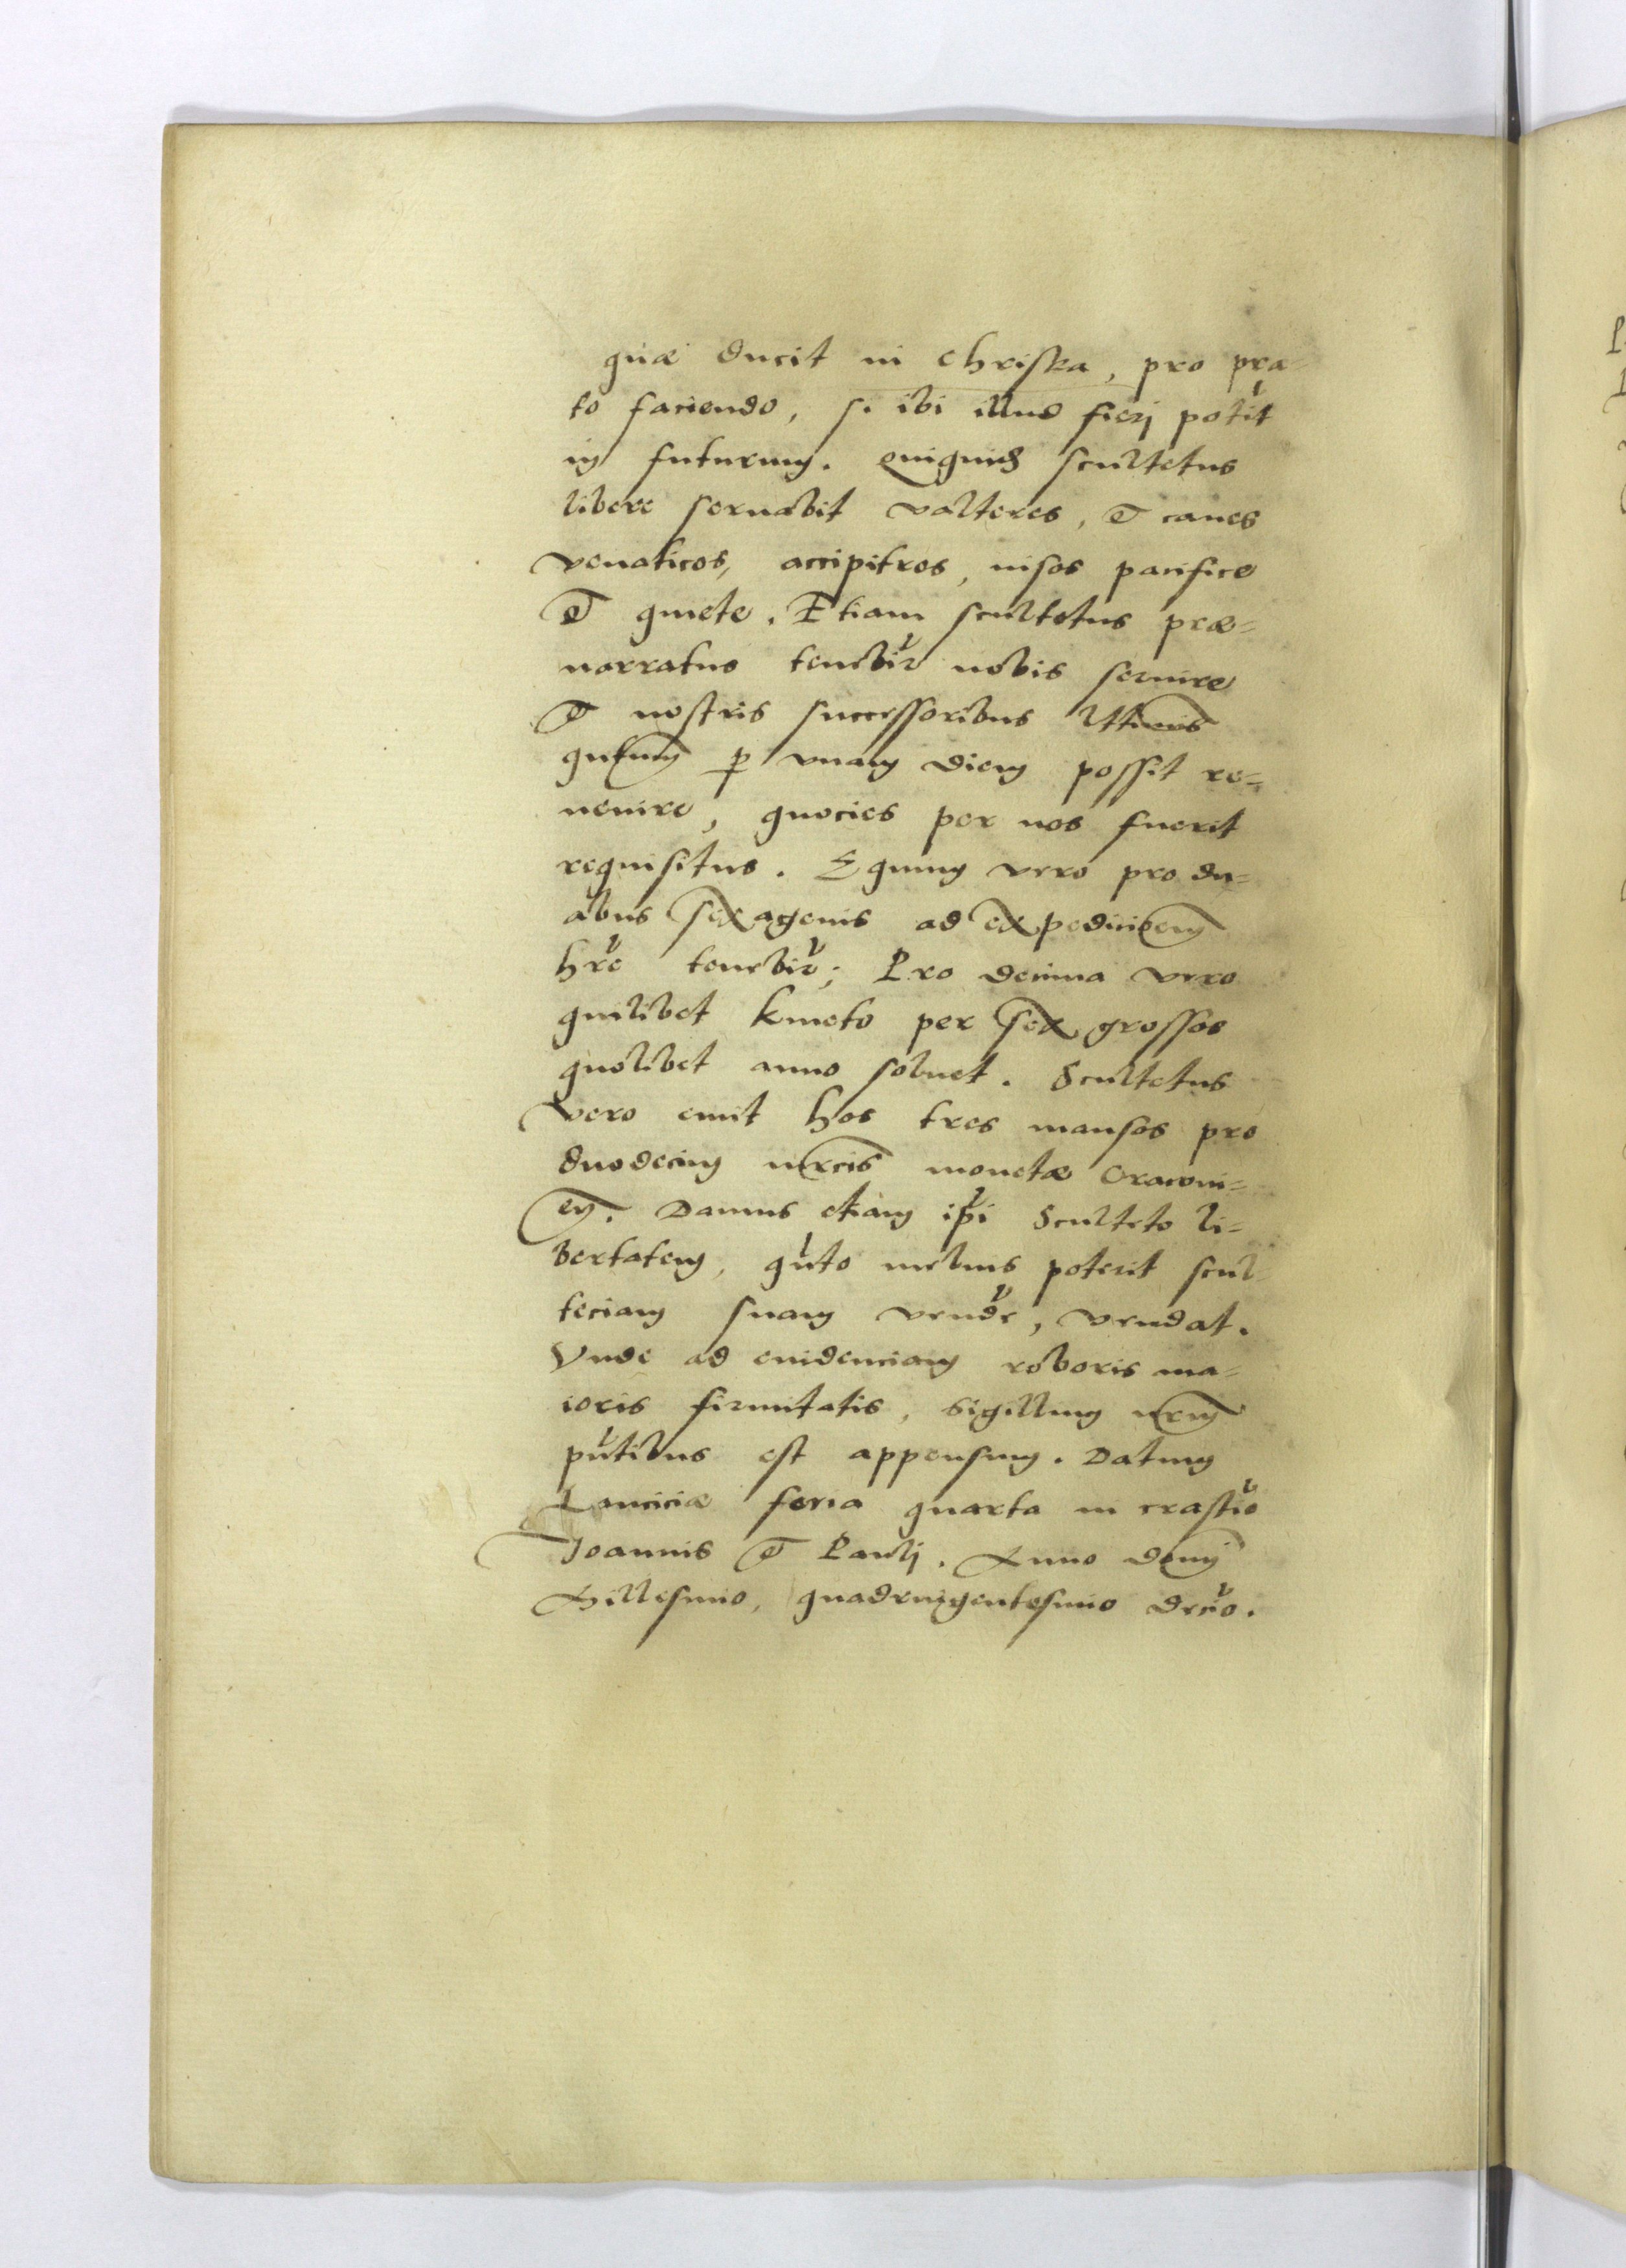 quæ ducit in Chriska, pro pra-
to faciendo, si ibi illud fierj potit
in futurum. quiquid scultetus
libere seruabit valteres, et canes
venaticos, accipitres, nisos pacifice
et quiete. Etiam scultetus præ-
narratus tenebir nobis seruire
et nostris successoribus
qutum p vnam diem possit re-
uenire, quocies per nos fuerit
requisitus. Equum vero pro du-
abus sexagenis ad expedicioem
hre tenebir; Pro decima vero
quilibet kmeto per sex grossos
quolibet anno soluet. Scultetus
vero emit hos tres mansos pro
duodecim mrcis monetæ Cracoui-
en. Damus etiam ipi Sculteto li-
bertatem, quto melius poterit scul-
teciam suam vendr, vendat.
Vnde ad euidenciam roboris ma-
ioris firmitatis, Sigillum nrm
pntibus est appensum. Datum
Lanciciæ feria quarta in crastio
Ioannis et Paulj. Anno domj
Millesimo, quadringentesimo decio.